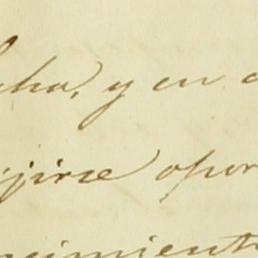 cha, y en
jirse opor
cimient